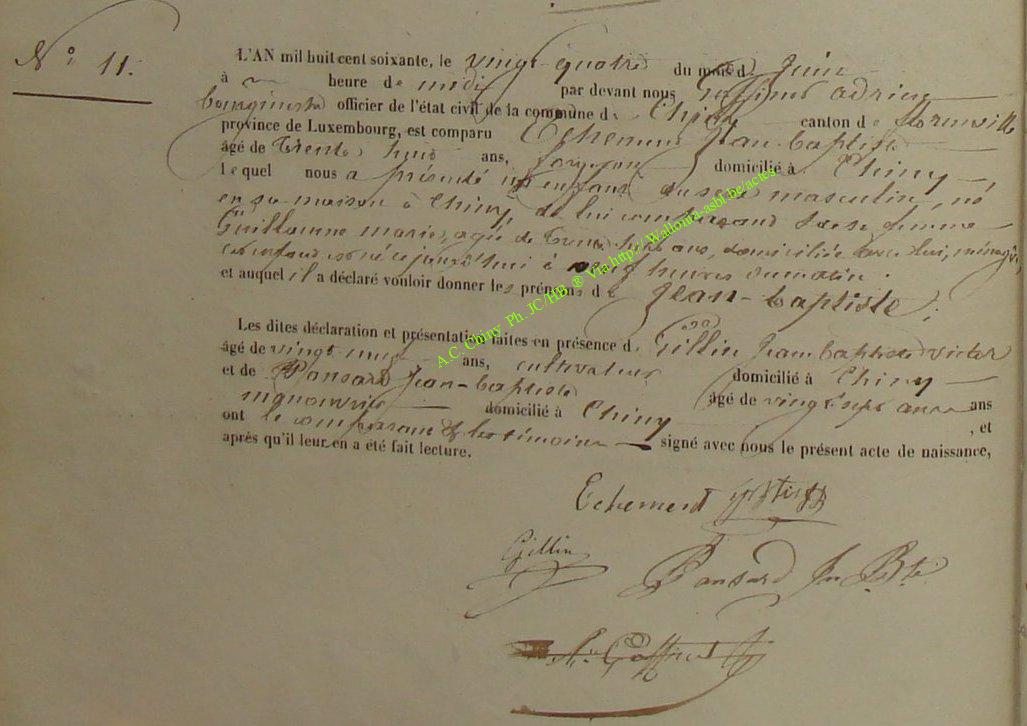 N° 11.
L'AN mil huit cent soixante, le vingt quatre du mois d. Juin
à heure de midi par devant nous Goffinet adrien
bourgmestre officier de l'état civil de la commune de Chiny canton de florenville
province de Luxembourg, est comparu Echement Jean-baptiste
âgé de trente huit ans, forgeron domicilié à Chiny
lequel nous a présenté un enfant du sexe masculin, né
en sa maison à Chiny, de lui comparant et de sa femme
Guillaume marie, agée de trente ans, domiciliée avec lui, ménagère,
cet enfant est né cejourd'hui à neuf heures du matin
et auquel il a déclaré vouloir donner les prénoms de Jean-baptiste.
Les dites déclaration et présentation faites en présence d. Gillin Jean baptiste victor
âgé de vingt neuf ans, cultivateur domicilié à Chiny
et de Pansard Jean-baptiste âgé de vingt sept ans ans
manouvrier domicilié à Chiny , et
ont le comparant & les témoins signé avec nous le présent acte de naissance,
après qu'il leur en a été fait lecture.
Echement
Gillin
Pansard Jn Bte
Goffinet
A.C. Chiny Ph. JC/HB ® Via http://Wallonia-asbl.be/actes